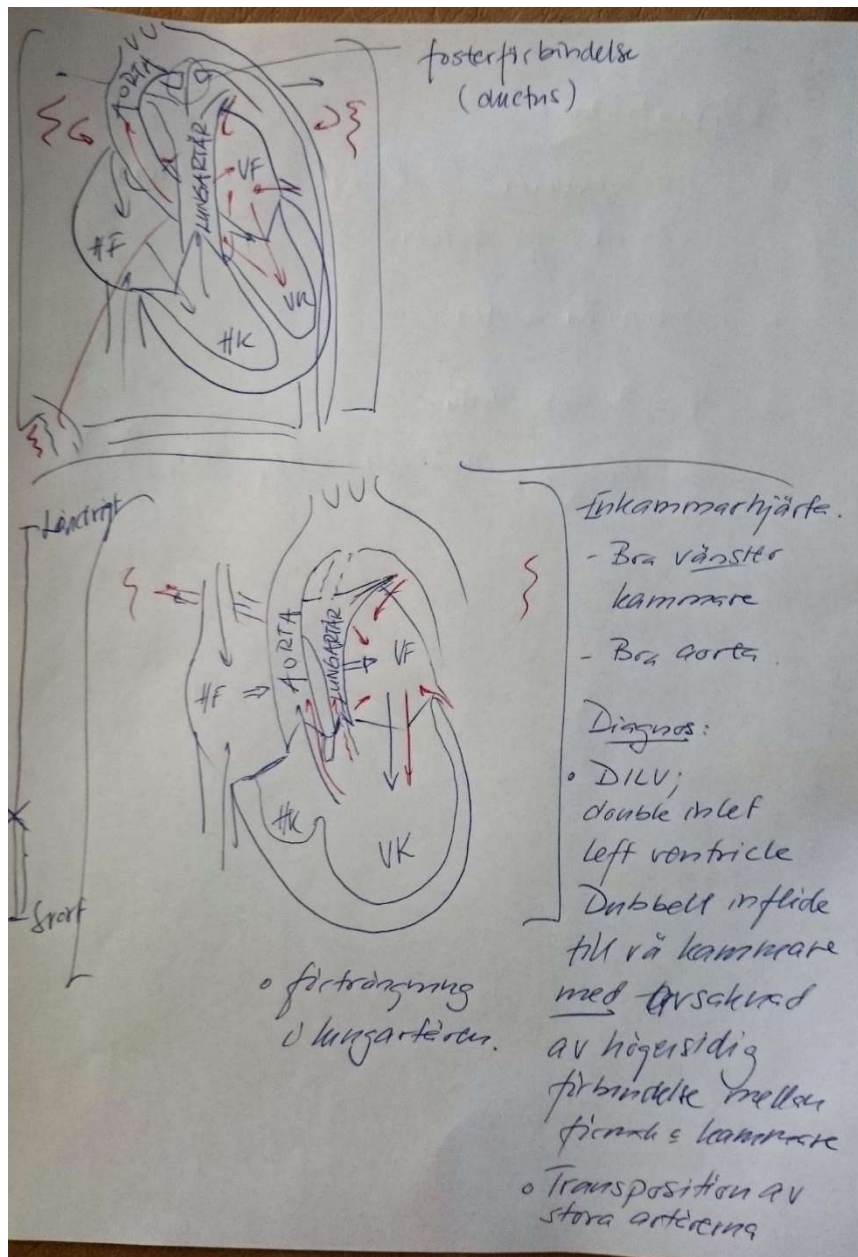 fosterförbindelse
(ductus)
AORTA
LUNGARTÄR
VF
HF
VK
HK
Lindrigt
Svårt
AORTA
LUNGARTÄR
VF
HF
HK
VK
o förträngning
i lungartären.
Enkammarhjärta.
- Bra vänster
kammare
- Bra aorta
Diagnos:
o DILV;
double inlet
left ventricle
Dubbelt inflöde
till vä kammare
med avsaknad
av högersidig
förbindelse mellan
förmak & kammare
o Transposition av
stora artärerna